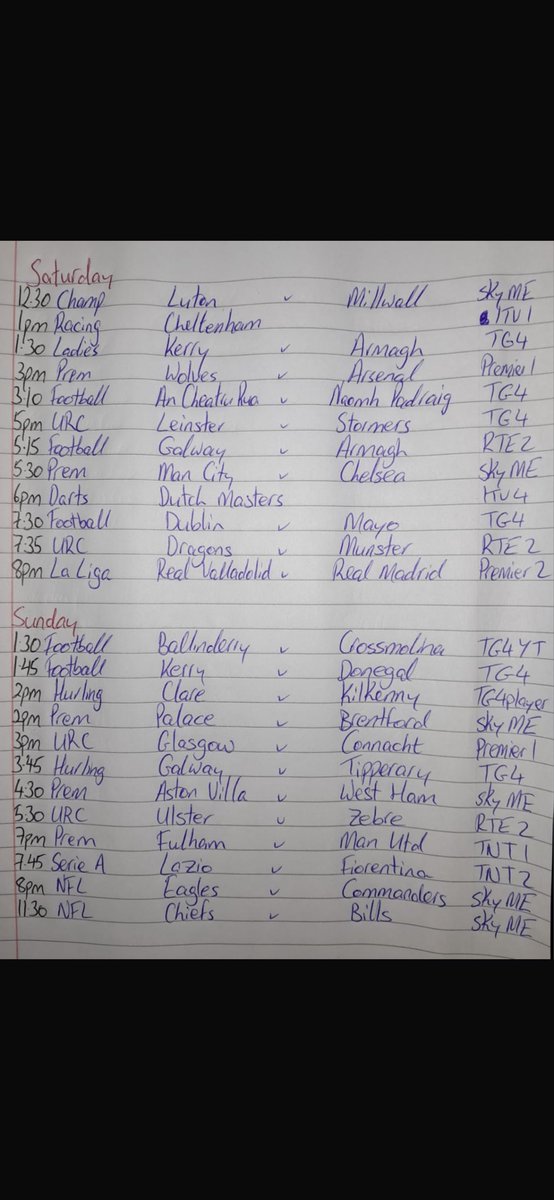 Saturday
12.30 Champ Luton v Millwall Sky ME
1pm Racing Cheltenham ITV1
1.30 Ladies Kerry v Armagh TG4
3pm Prem Wolves v Arsenal Premier 1
3.10 Football An Cheathru Rua v Naomh Padraig TG4
5pm URC Leinster v Stormers TG4
5.15 Football Galway v Armagh RTE2
5.30 Prem Man City v Chelsea Sky ME
6pm Darts Dutch Masters ITV4
7.30 Football Dublin v Mayo TG4
7.35 URC Dragons v Munster RTE2
8pm La Liga Real Valladolid v Real Madrid Premier 2
Sunday
1.30 Football Ballinderry v Crossmolina TG4 YT
1.45 Football Kerry v Donegal TG4
2pm Hurling Clare v Kilkenny TG4player
2pm Prem Palace v Brentford Sky ME
3pm URC Glasgow v Connacht Premier 1
3.45 Hurling Galway v Tipperary TG4
4.30 Prem Aston Villa v West Ham Sky ME
5.30 URC Ulster v Zebre RTE 2
7pm Prem Fulham v Man Utd TNT1
7.45 Serie A Lazio v Fiorentina TNT2
8pm NFL Eagles v Commanders Sky ME
11.30 NFL Chiefs v Bills Sky ME